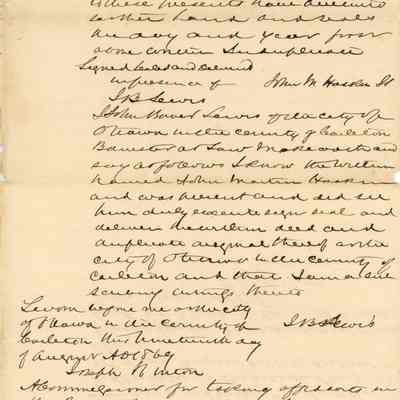 to these presents have
to their hand and seals
the day and year first
above written In duplicate
Signed Sealed and delivered
in presence of John M Hasken LS
J.B. Lewis
I John Bower Lewis of the city of
Ottawa in the County of Carleton
Barrister at Law Make oath and
say as follows I know the within
named John Martin
and was present and did see
him duly execute sign seal and
deliver the within deed and
duplicate original thereof at the
city of Ottawa in the County of
Carleton and that I am a sub
scribing witness thereto
Sworn before me at the city
of Ottawa in the County of J B Lewis
Carleton this nineteenth day
of August AD 1869
Joseph
A Commissioner for taking affidavits in